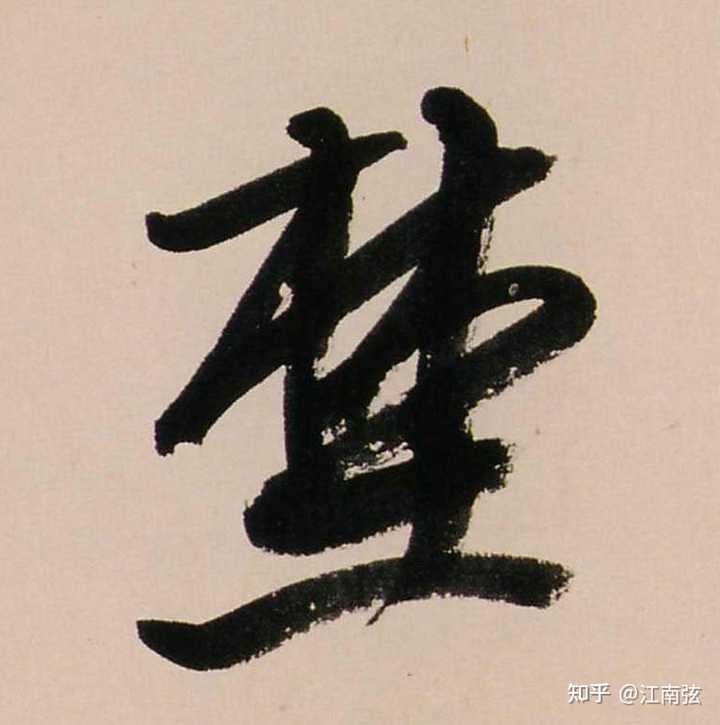 埜
知乎 @江南弦